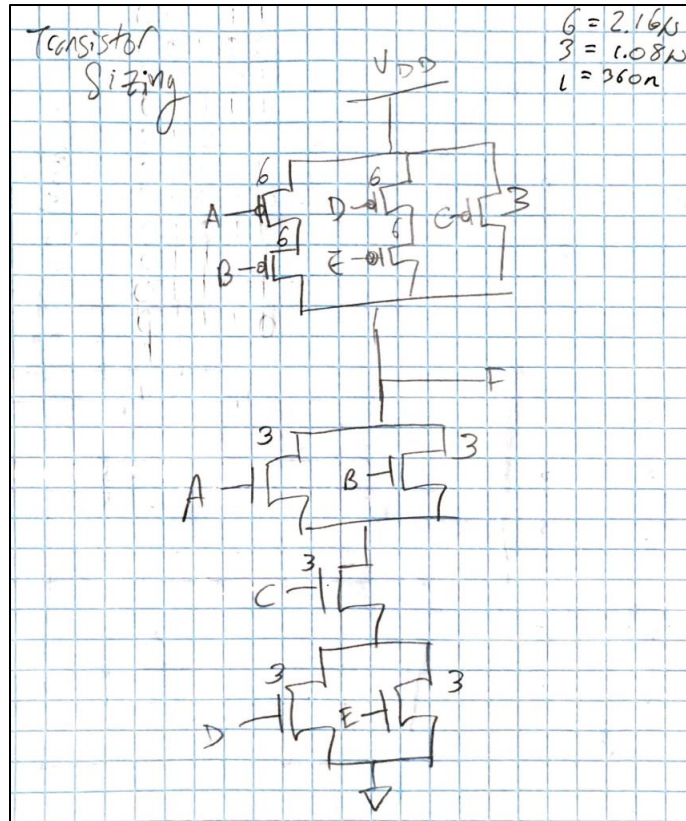 Transistor
Sizing
6 = 2.16µ
3 = 1.08µ
1 = 360n
VDD
6
6
A
D
C
3
6
6
B
E
F
3
3
A
B
3
C
3
3
D
E